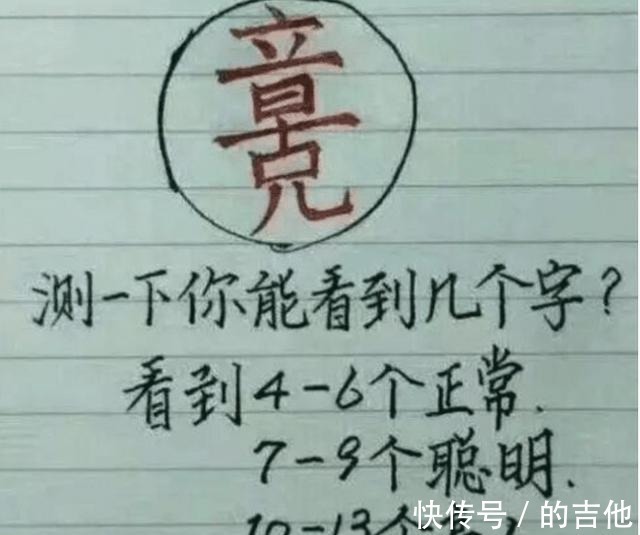 测一下你能看到几个字?
看到4-6个正常.
7-9个聪明.
10-13个
快传号 / 的吉他